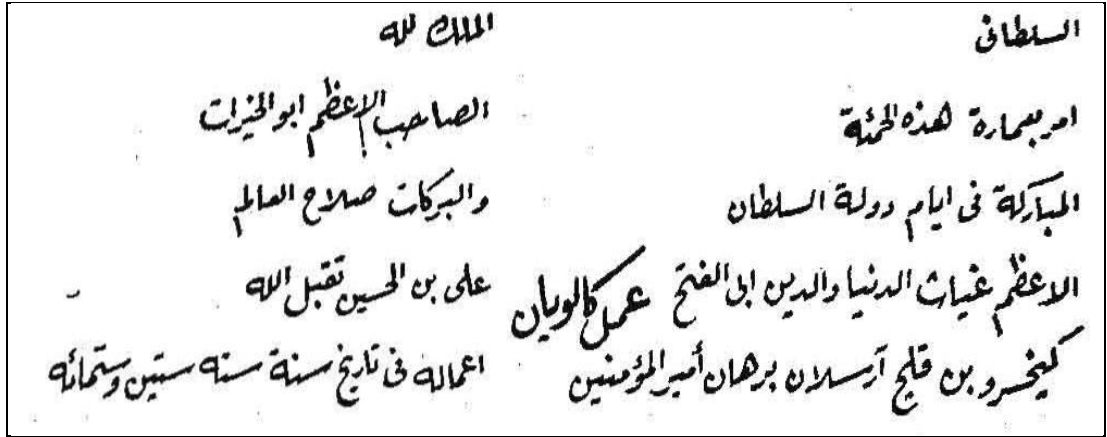 السلطانى
امر بعمارة هذه الحمئة
المباركة فى ايام دولة السلطان
الاعظم غياث الدنيا والدين ابى الفتح
كيخسرو بن قليج آرسلان برهان أمير المؤمنين
عمل كالويان
الملك لله
الصاحب الاعظم ابو الخيرات
والبركات صلاح العالم
على بن الحسين تقبل الله
اعماله فى تاريخ سنة سته ستين وستمائه